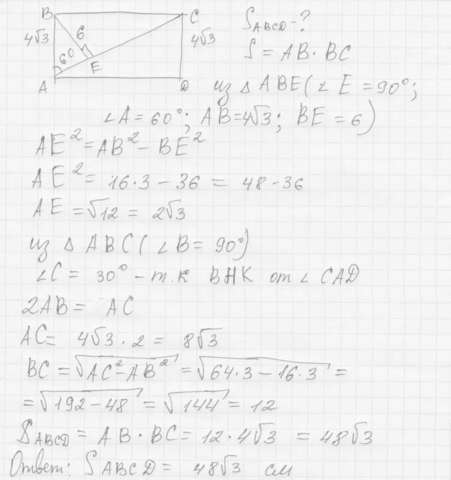 B
C
S_ABCD - ?
4√3
6
4√3
S = AB · BC
60°
E
A
D
из △ ABE (∠E = 90°;
∠A = 60°; AB = 4√3; BE = 6)
AE² = AB² - BE²
AE² = 16·3 - 36 = 48 - 36
AE = √12 = 2√3
из △ ABC (∠B = 90°)
∠C = 30° - т.к ВНК от ∠ CAD
2AB = AC
AC = 4√3 · 2 = 8√3
BC = √AC² - AB² = √64·3 - 16·3 =
= √192 - 48 = √144 = 12
S_ABCD = AB · BC = 12 · 4√3 = 48√3
Ответ: S_ABCD = 48√3 см